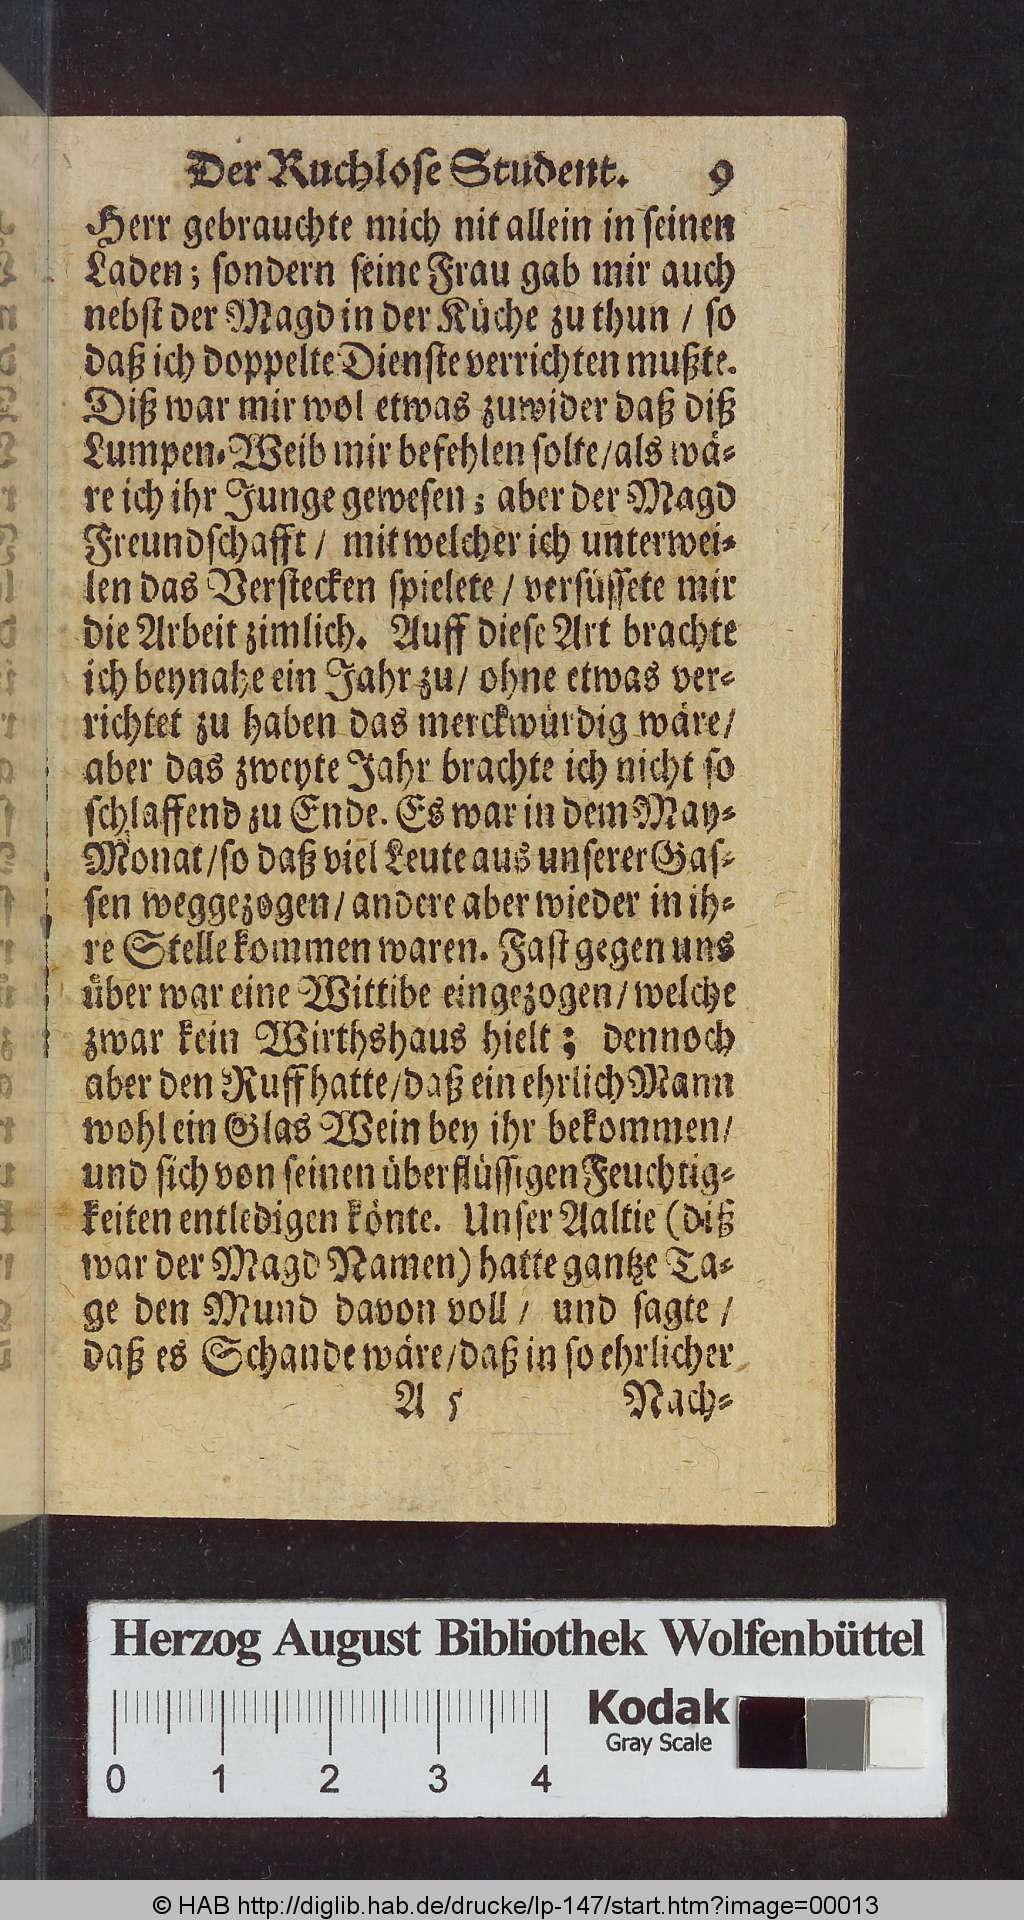 Der Ruchlose Student. 9
Herr gebrauchte mich nit allein in seinen
Laden; sondern seine Frau gab mir auch
nebst der Magd in der Küche zu thun / so
daß ich doppelte Dienste verrichten mußte.
Diß war mir wol etwas zuwider daß diß
Lumpen-Weib mir befehlen solte/als wä-
re ich ihr Junge gewesen; aber der Magd
Freundschafft / mit welcher ich unterwei-
len das Verstecken spielete / versüssete mir
die Arbeit zimlich. Auff diese Art brachte
ich beynahe ein Jahr zu/ ohne etwas ver-
richtet zu haben das merckwürdig wäre/
aber das zweyte Jahr brachte ich nicht so
schlaffend zu Ende. Es war in dem May-
Monat/so daß viel Leute aus unserer Gas-
sen weggezogen/andere aber wieder in ih-
re Stelle kommen waren. Fast gegen uns
über war eine Wittibe eingezogen/welche
zwar kein Wirthshaus hielt; dennoch
aber den Ruff hatte/daß ein ehrlich Mann
wohl ein Glas Wein bey ihr bekommen/
und sich von seinen überflüssigen Feuchtig-
keiten entledigen könte. Unser Aaltie (diß
war der Magd Namen) hatte gantze Ta-
ge den Mund davon voll / und sagte /
daß es Schande wäre/daß in so ehrlicher
A 5 Nach-
Herzog August Bibliothek Wolfenbüttel
Kodak
Gray Scale
0 1 2 3 4
© HAB http://diglib.hab.de/drucke/lp-147/start.htm?image=00013